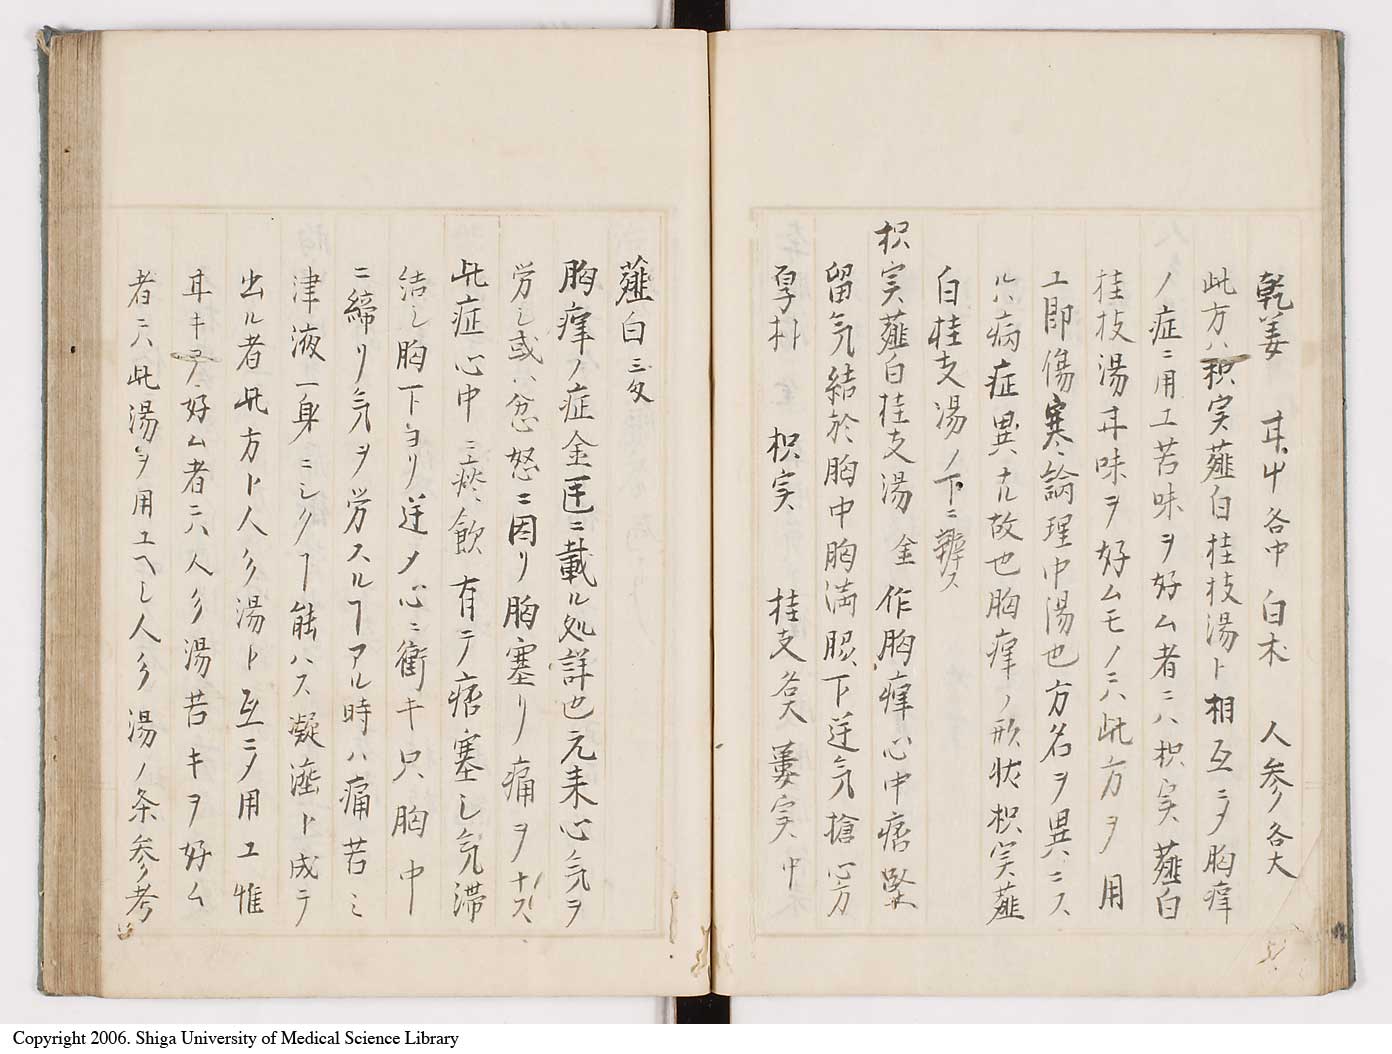 乾姜 耳中各中 白朮 人参各大
此方ハ枳実薤白桂枝湯ト相互ニヲ胸痺
ノ症ニ用エ苦味ヲ好ム者ニハ枳実薤白
桂枝湯耳味ヲ好ムモノニハ此方ヲ用
エ即傷寒論理中湯也方名ヲ異ニス
ルハ病症異ナル故也胸痺ノ形状枳実薤
白桂支湯ノ下ニ辨ス
枳実薤白桂支湯 金 作胸痺心中痞緊
留気結於胸中胸満脇下逆気搶心方
厚朴 枳実 桂支各大 蔞実中
薤白三匁
胸痺ノ症金匱ニ載ル処詳也元来心気ヲ
労シ或ハ忿怒ニ因リ胸塞リ痛ヲナス
此症心中ニ痰飲有テ痞塞シ気滞
結シ胸下ヨリ逆メ心ニ衝キ只胸中
ニ締リ気ヲ労スルヿアル時ハ痛苦ミ
津液一身ニシクヿ能ハス凝滞ト成テ
出ル者此方ト人参湯ト互ニヲ用エ惟
耳キヲ好ム者ニハ人参湯苦キヲ好ム
者ニハ此湯ヲ用エヘシ人参湯ノ条参考
Copyright 2006. Shiga University of Medical Science Library